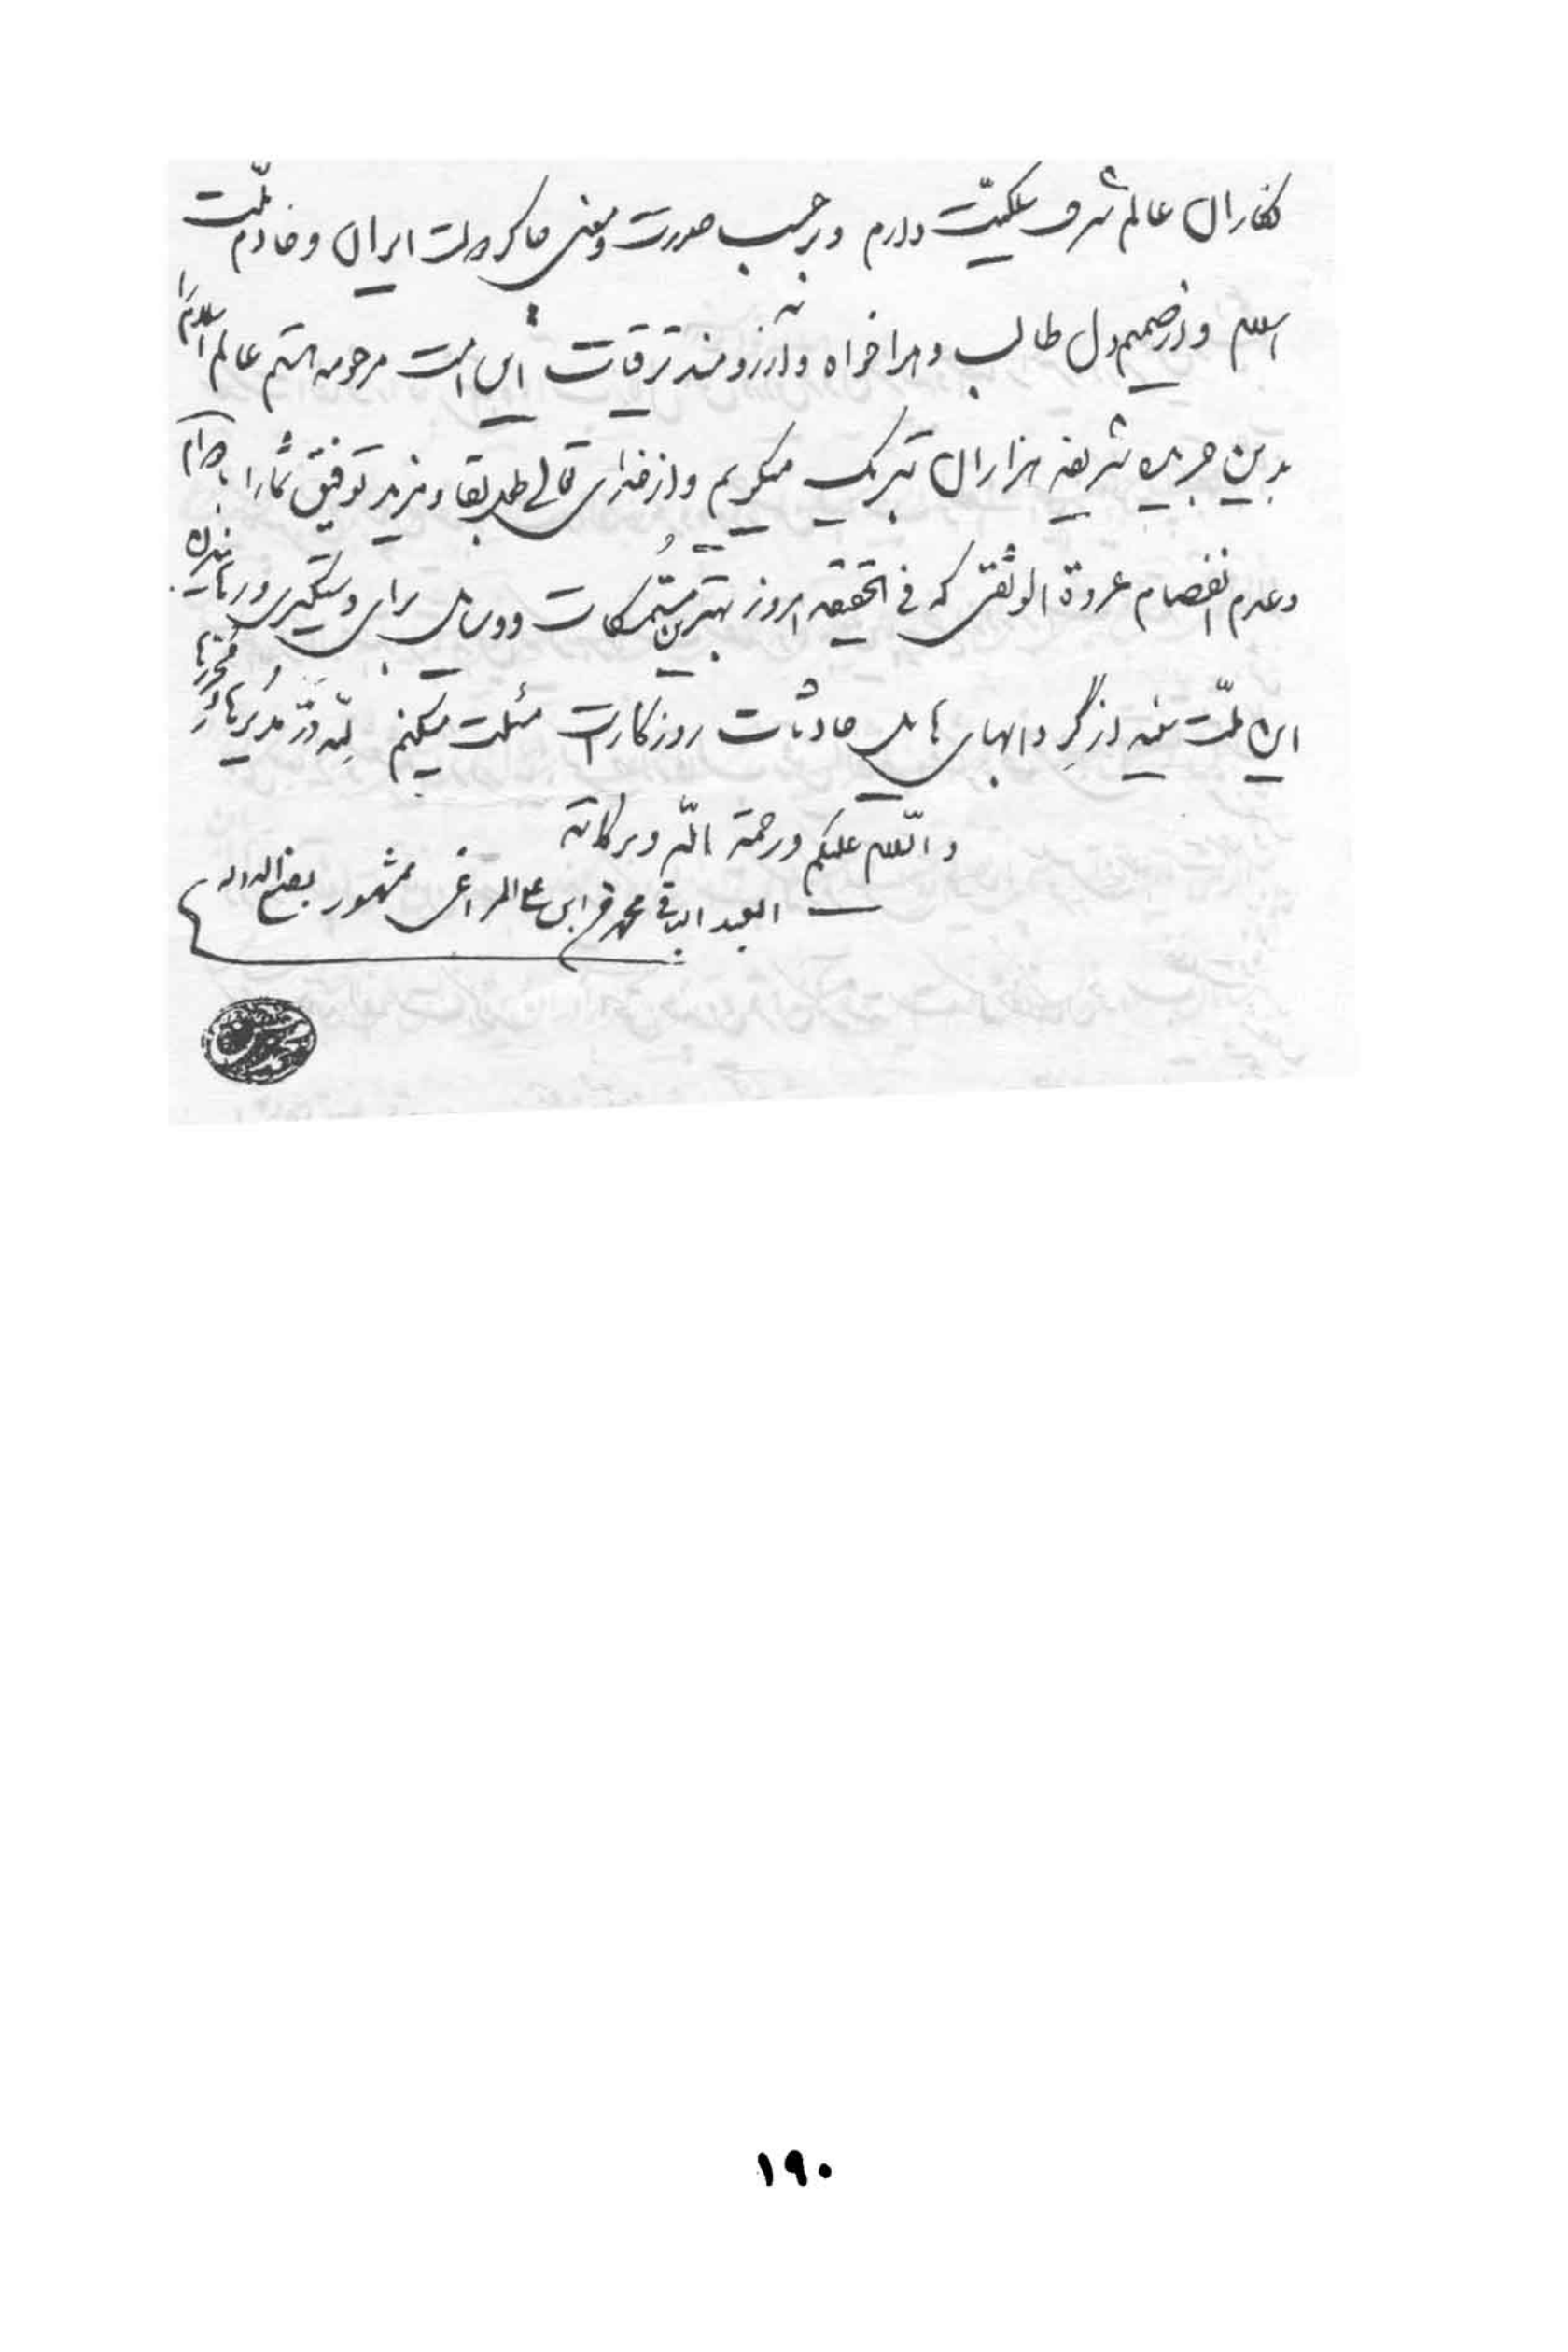 عالم شرف ملکیّت دارم و برحسب صورت و معنی چاکر دولت ایران و خادم ملّت
اسلام و از صمیم دل طالب و هواخواه و آرزومند ترقیات این امت مرحومه هستم عالم اسلام را
بدین جریده شریفه هزاران تبریک میگویم و از خدای تعالی طلب بقا و مزید توفیق شما را با دوام
و عدم انفصام عروة الوثقی که فی الحقیقه امروز بهترین متمسکات و وسایل برای دستگیری و رهاننده
این ملّت از حادثات روزگار است مسئلت میکنم لله درّ مدیرها و محررها
و السّلام علیکم و رحمة الله و برکاته
العبد محمد ابن علی المراغی مشهور
۱۹۰